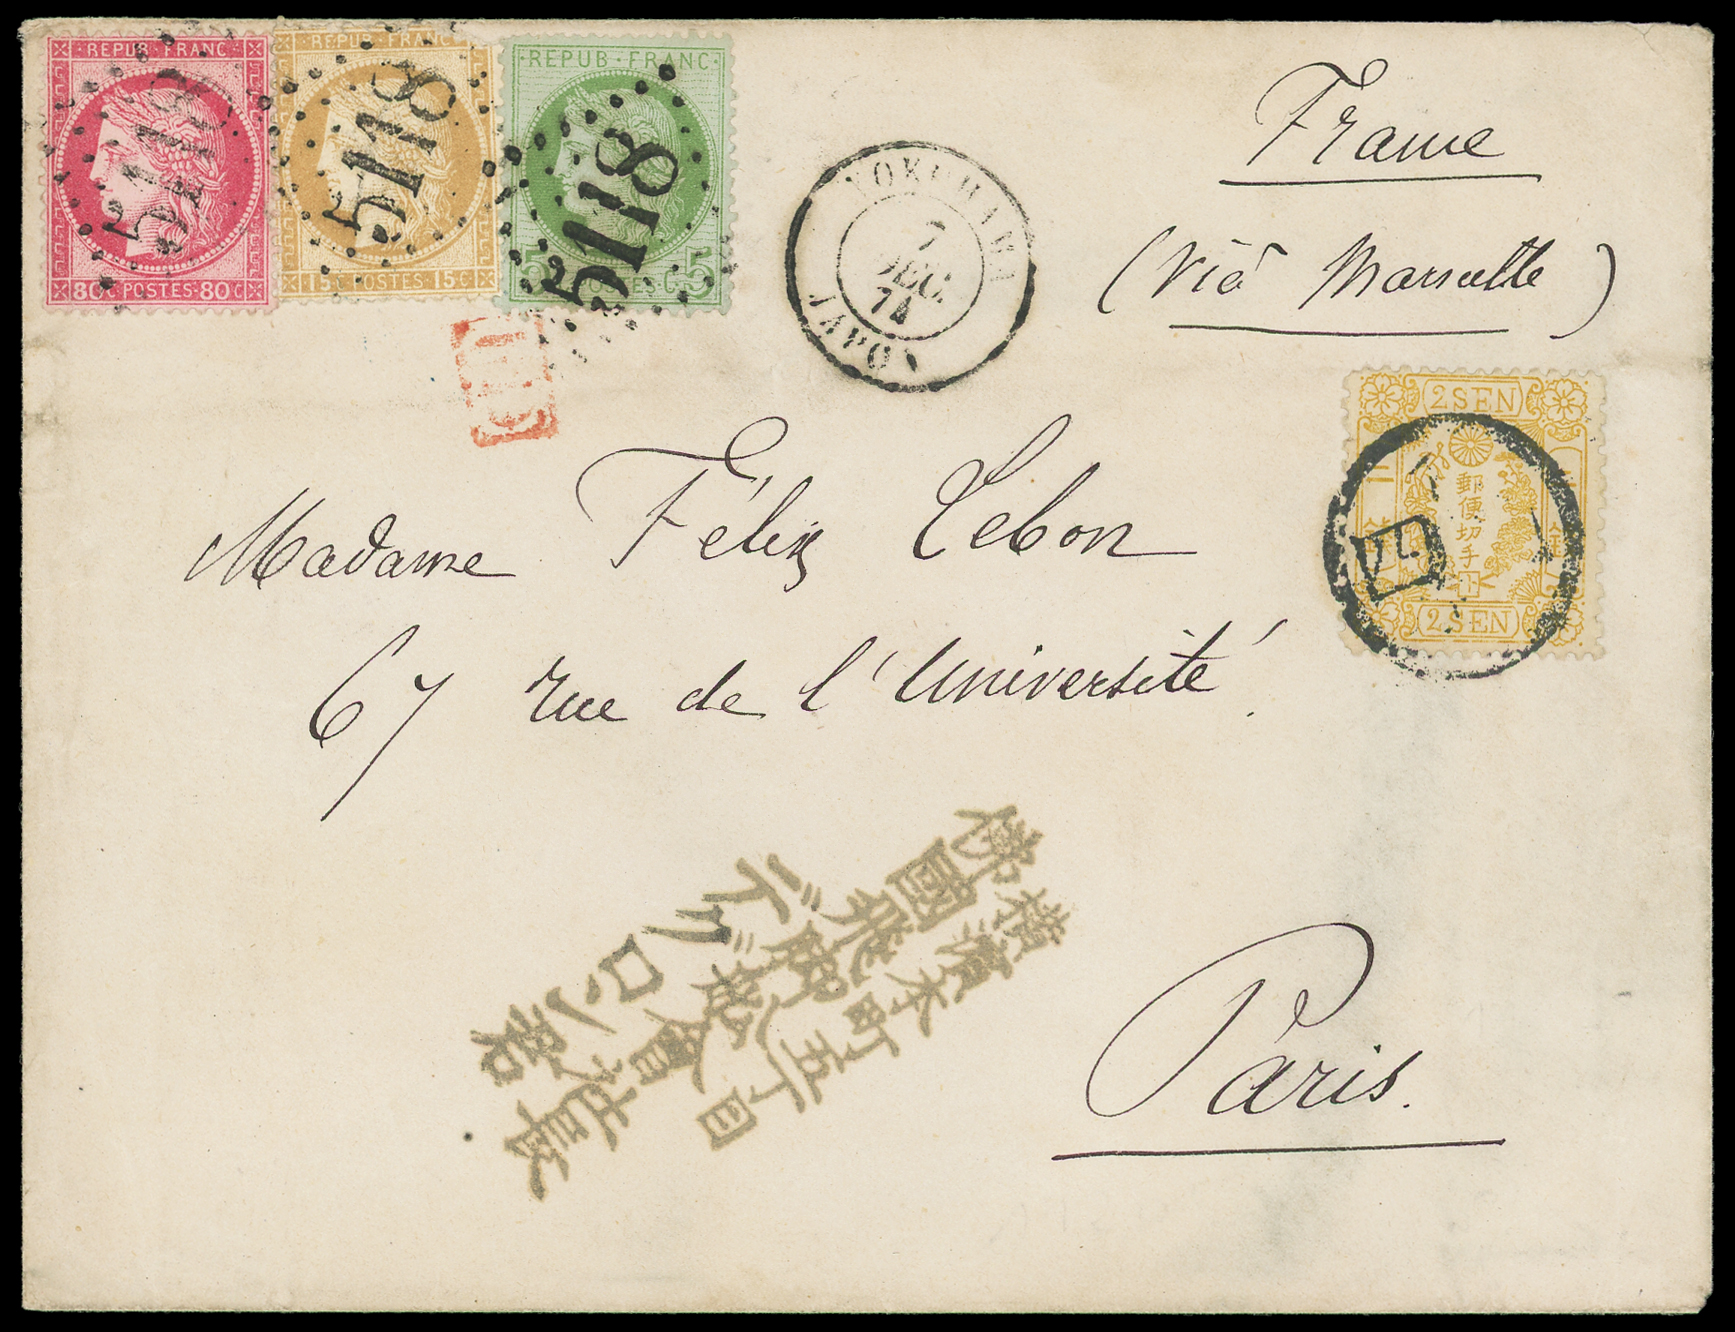 REPUB·FRANC·
80C·POSTES·80C
5118
REPUB·FRANC·
15C·POSTES·15C
5118
·REPUB·FRANC·
5·POSTES·C·5
5118
YOKOHAMA
7
DEC.
74
JAPON
France
(Viâ Marseille)
PD
2 SEN
郵便切手
2 SEN
Madame Félix Lebon
67 rue de l'Université.
Paris.
横濱本町五丁目
佛國飛脚舩會社長
デグロン君